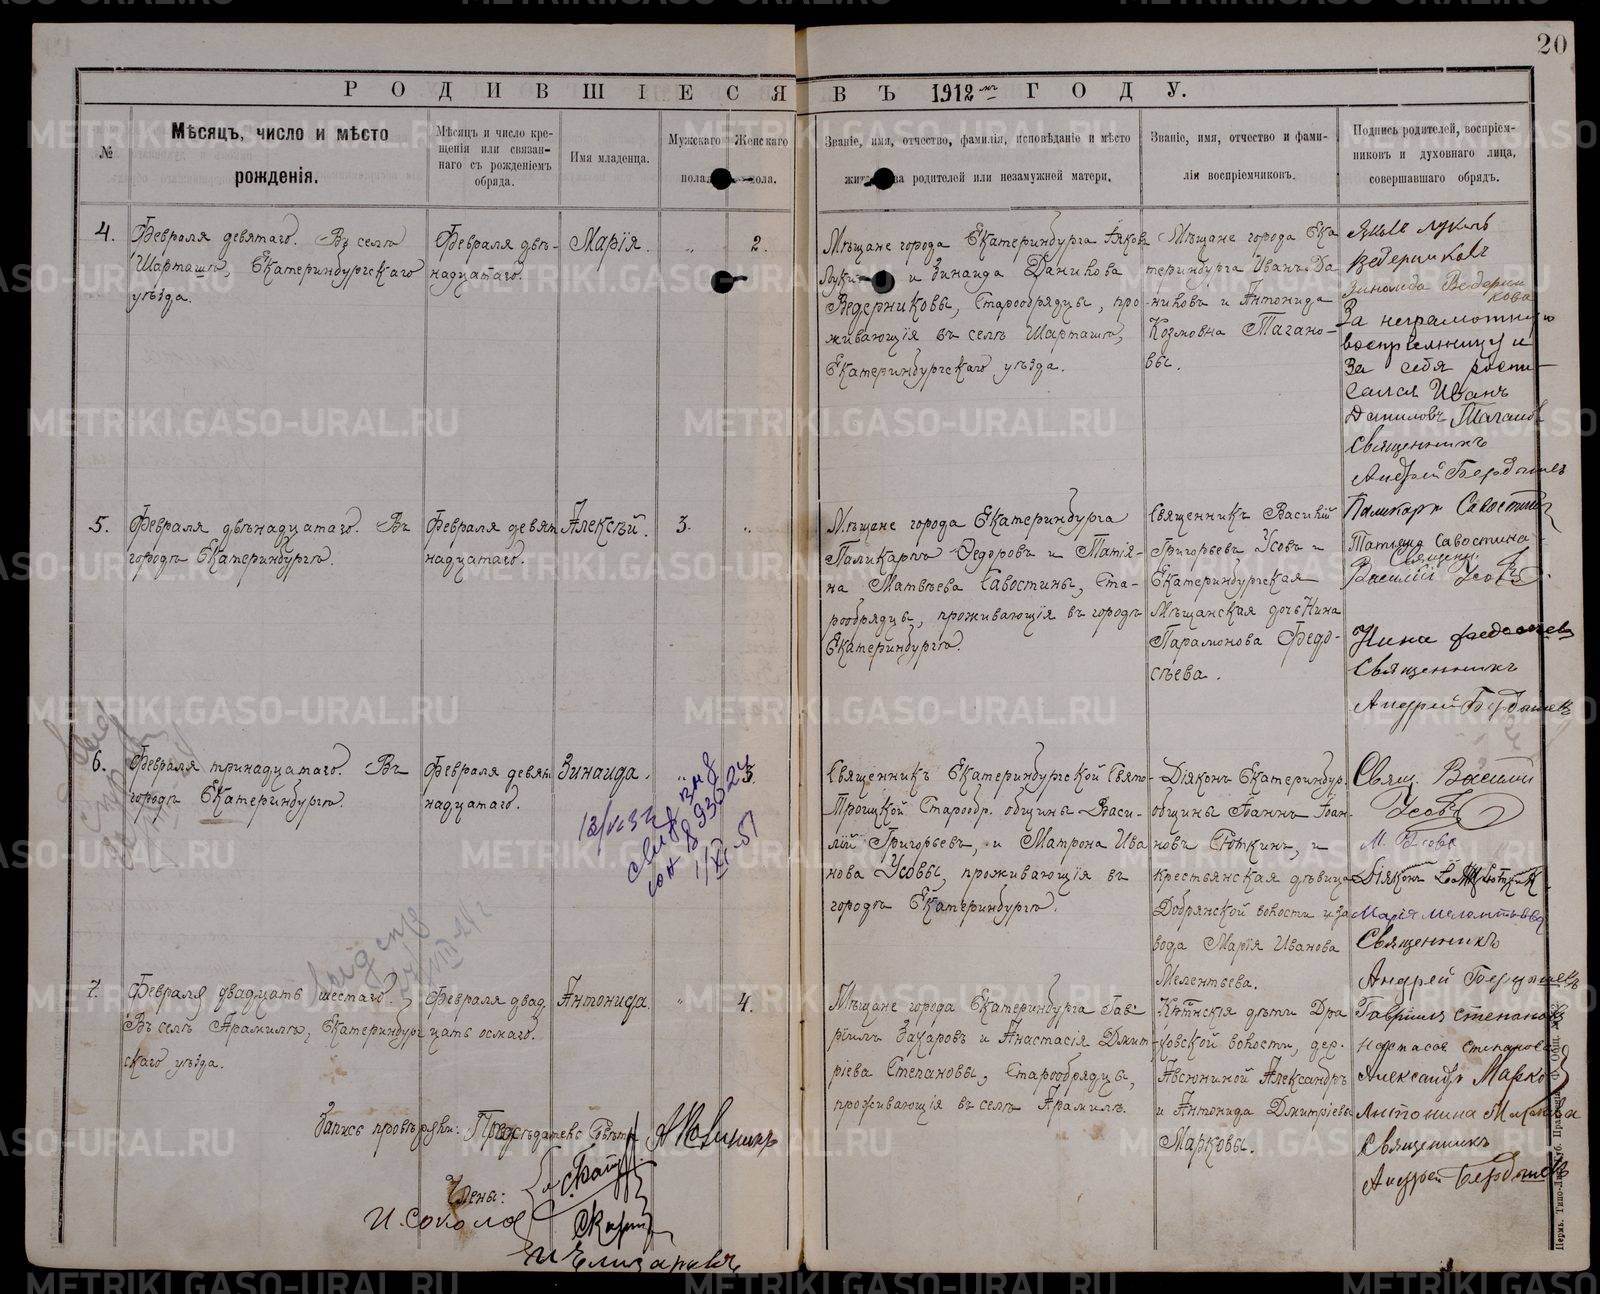 20
РОДИВШІЕСЯ ВЪ 1912 мъ ГОДУ.
№
Мѣсяцъ, число и мѣсто
рожденія.
Мѣсяцъ и число кре-
щенія или связан-
наго съ рожденіемъ
обряда.
Имя младенца.
Мужскаго
пола.
Женскаго
пола.
Званіе, имя, отчество, фамилія, исповѣданіе и мѣсто
родителей или незамужней матери.
Званіе, имя, отчество и фами-
ліи воспріемниковъ.
Подпись родителей, воспріем-
никовъ и духовнаго лица,
совершавшаго обрядъ.
4.
Февраля девятаго. Въ селѣ
Шарташѣ, Екатеринбургскаго
уѣзда.
Февраля двѣ-
надцатаго.
Марія.
2.
Мѣщане города Екатеринбурга Іяковъ
и Зинаида Данилова
Ведерниковы, Старообрядцы, про-
живающія въ селѣ Шарташѣ,
Екатеринбургскаго уѣзда.
Мѣщане города Ека
теринбурга Иванъ Да-
ниловъ и Антонида
Козмовна Тагано-
вы.
Ведерниковъ
Зинаида Ведерни
кова
За неграмотную
воспріемницу и
За себя роспи-
сался Иванъ
Даниловъ Таганов
Священникъ
Андрей Бердышевъ
5.
Февраля двѣнадцатаго. Въ
городѣ Екатеринбургѣ.
Февраля девят
надцатаго.
Алексѣй.
3.
Мѣщане города Екатеринбурга
Поликарпъ Ѳедоровъ и Татія-
на Матвѣева Савостины, Ста-
рообрядцы, проживающія въ городѣ
Екатеринбургѣ.
Священникъ Василій
Григорьевъ Усовъ и
Екатеринбургская
Мѣщанская дочь Нина
Парамонова Федо-
сѣева.
Поликарп Савостин
Татьяна Савостина
Священ.
Василій Усовъ.
Нина Федосѣева
Священникъ
Андрей Бердышевъ
6.
Февраля тринадцатаго. Въ
городѣ Екатеринбургѣ.
Февраля девят
надцатаго.
Зинаида.
3
Священникъ Екатеринбургской Свято-
Троицкой Старообр. общины Васи-
лій Григорьевъ, и Матрона Ива
нова Усовы, проживающія въ
городѣ Екатеринбургѣ.
Діяконъ Екатеринбур.
общины Іоаннъ Іоан-
новъ Сюткинъ, и
крестьянская дѣвица
Добрянской волости и за
вода Марія Иванова
Мелентьева.
Свящ. Василій
Усовъ
М. Усова
Марія Мелентьева
Священникъ
Андрей Бердышевъ
7.
Февраля двадцать шестаго.
Въ селѣ Арамилѣ, Екатеринбург
скаго уѣзда.
Февраля двад
цать осмаго.
Антонида.
4.
Мѣщане города Екатеринбурга Гав-
ріилъ Захаровъ и Анастасія Дмит-
ріева Степановы, Старообрядцы,
проживающія въ селѣ Арамилѣ.
волости, дер.
Александръ
и Антонида Дмитріевы
Марковы.
Гавріилъ Степановъ
Настасья Степанова
Александръ Марков
Антонина Маркова
Священникъ
Андрей Бердышевъ
Запись провѣряли: Предсѣдатель Совѣта
Члены:
И. Соколов
И Елизаровъ